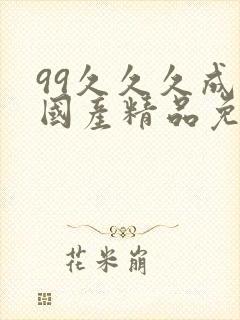 99久久久成
國產精品免
花米崩